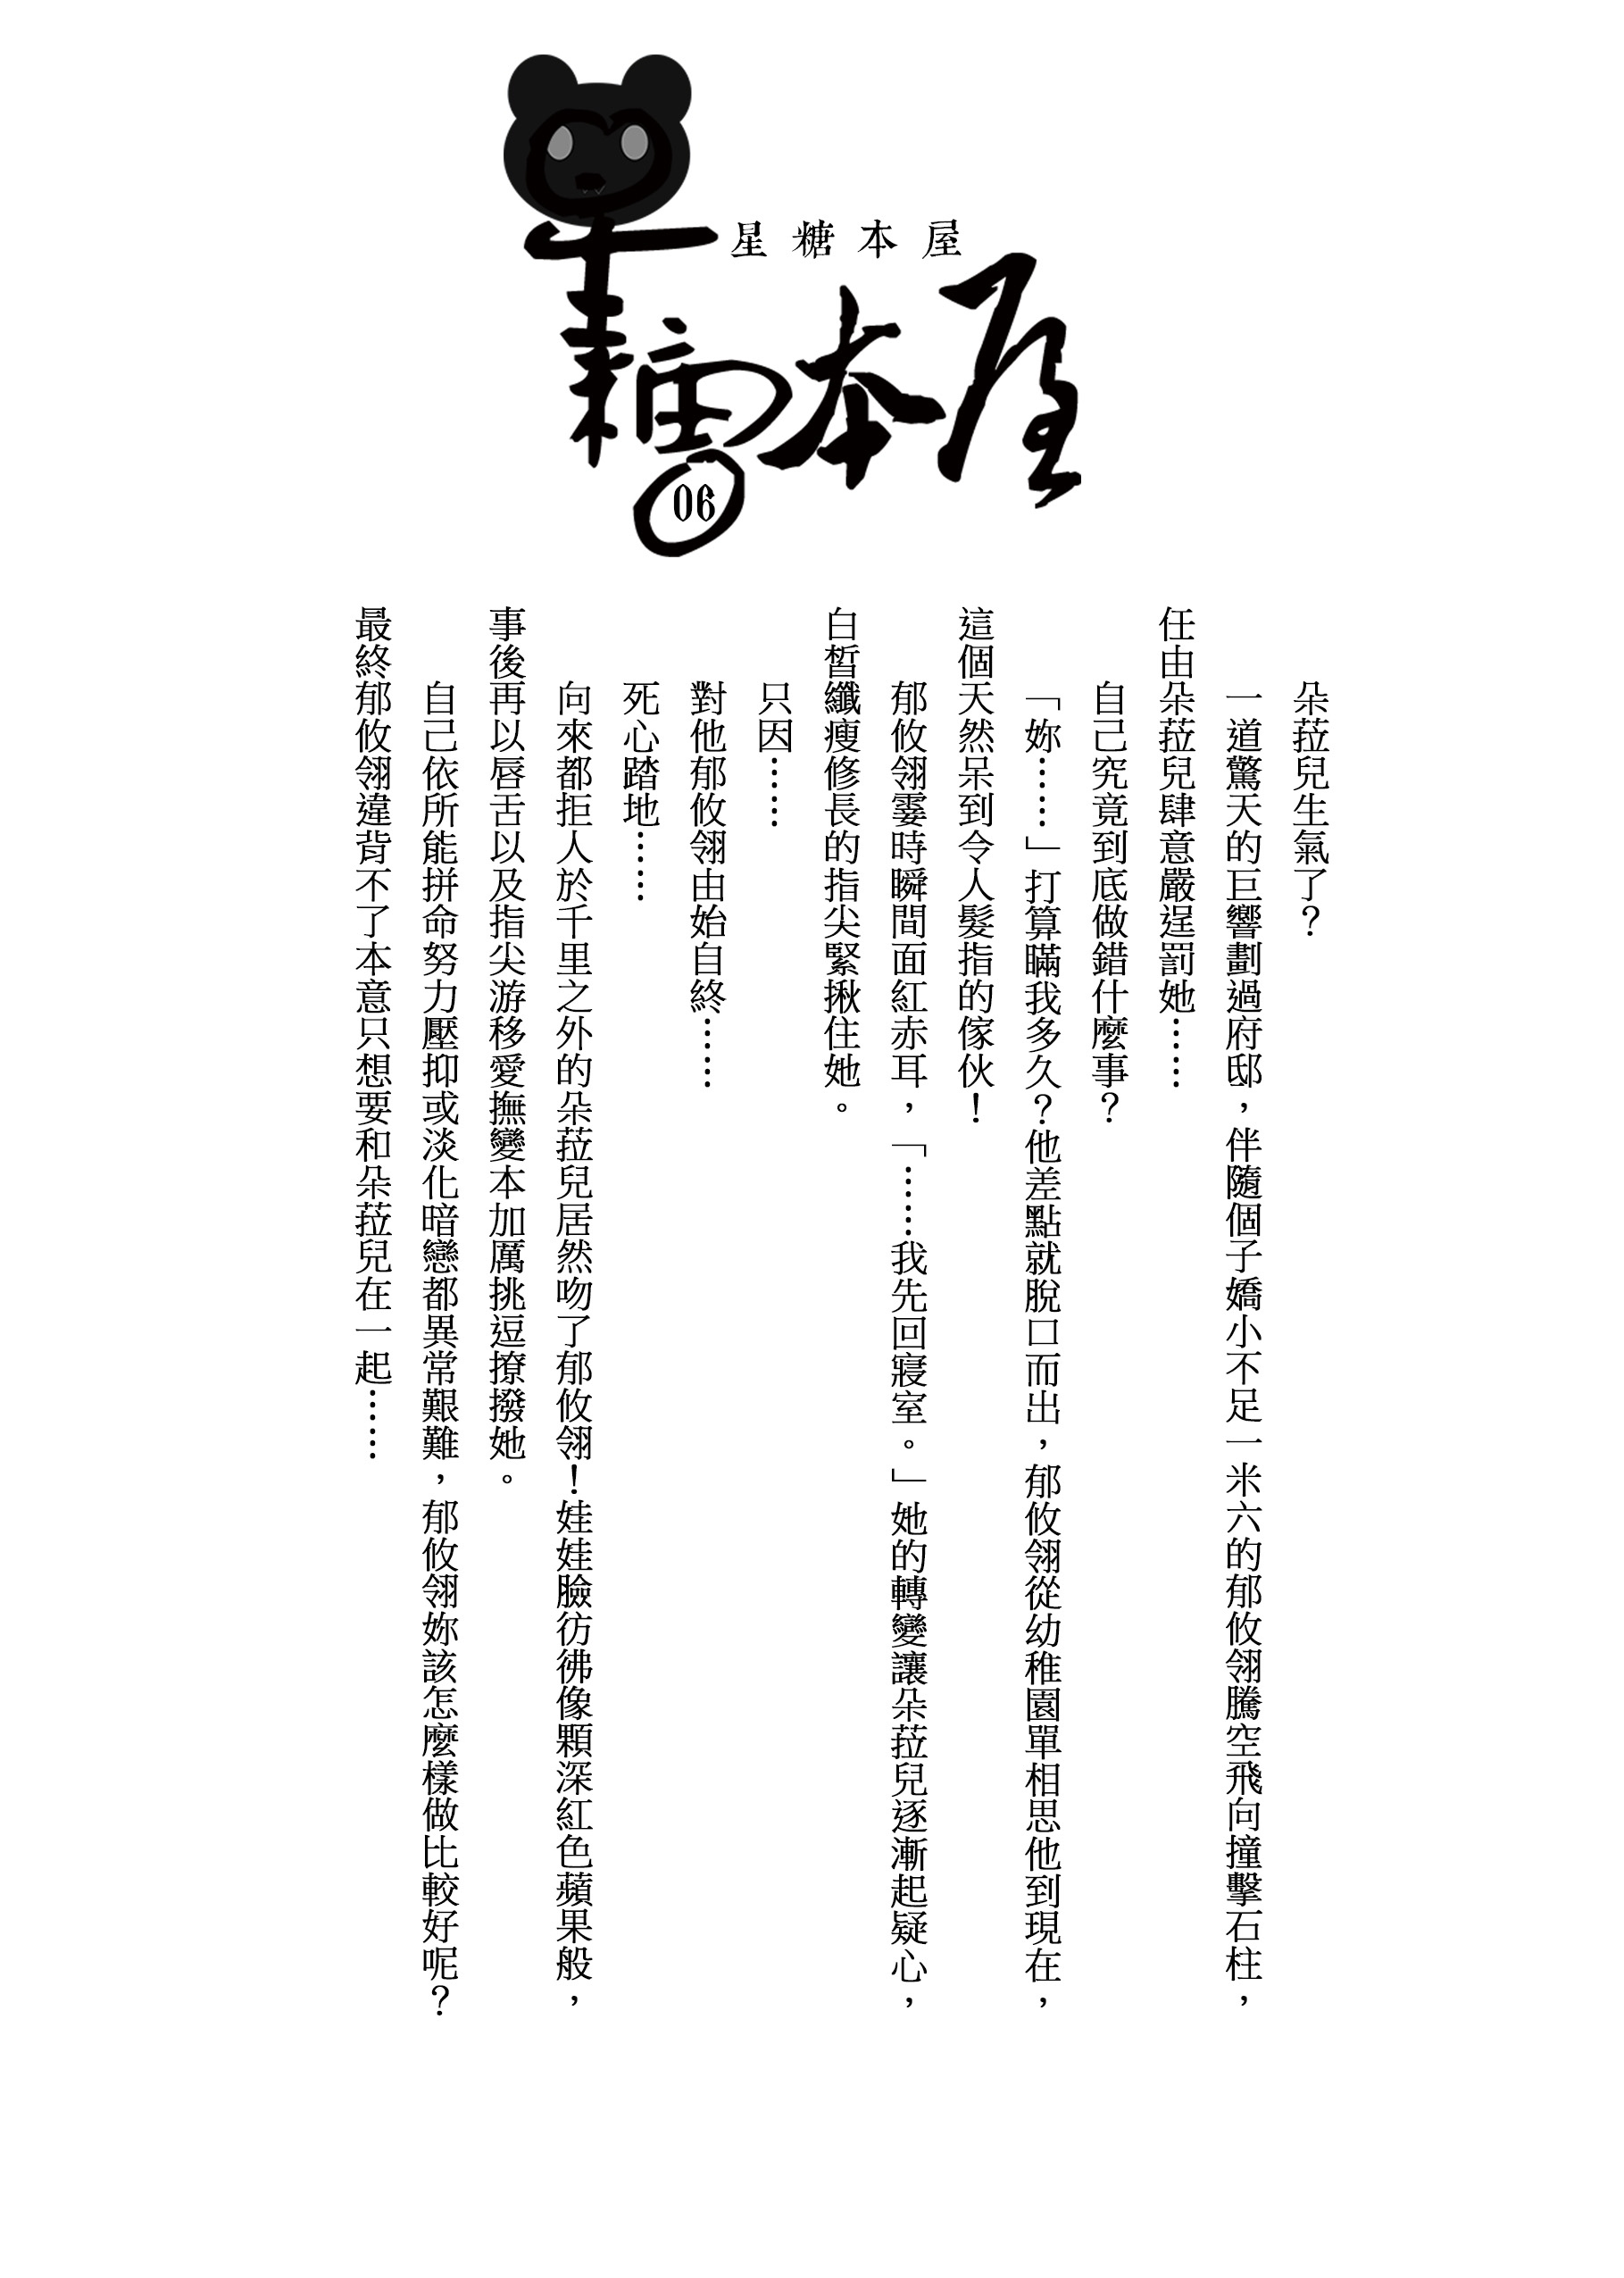 星糖本屋
星糖本屋
06
朵菈兒生氣了？
一道驚天的巨響劃過府邸，伴隨個子嬌小不足一米六的郁攸翎騰空飛向撞擊石柱，
任由朵菈兒肆意嚴逞罰她……
自己究竟到底做錯什麼事？
「妳……」打算瞞我多久？他差點就脫口而出，郁攸翎從幼稚園單相思他到現在，
這個天然呆到令人髮指的傢伙！
郁攸翎霎時瞬間面紅赤耳，「……我先回寢室。」她的轉變讓朵菈兒逐漸起疑心，
白皙纖瘦修長的指尖緊揪住她。
只因……
對他郁攸翎由始自終……
死心踏地……
向來都拒人於千里之外的朵菈兒居然吻了郁攸翎！娃娃臉彷彿像顆深紅色蘋果般，
事後再以唇舌以及指尖游移愛撫變本加厲挑逗撩撥她。
自己依所能拼命努力壓抑或淡化暗戀都異常艱難，郁攸翎妳該怎麼樣做比較好呢？
最終郁攸翎違背不了本意只想要和朵菈兒在一起……